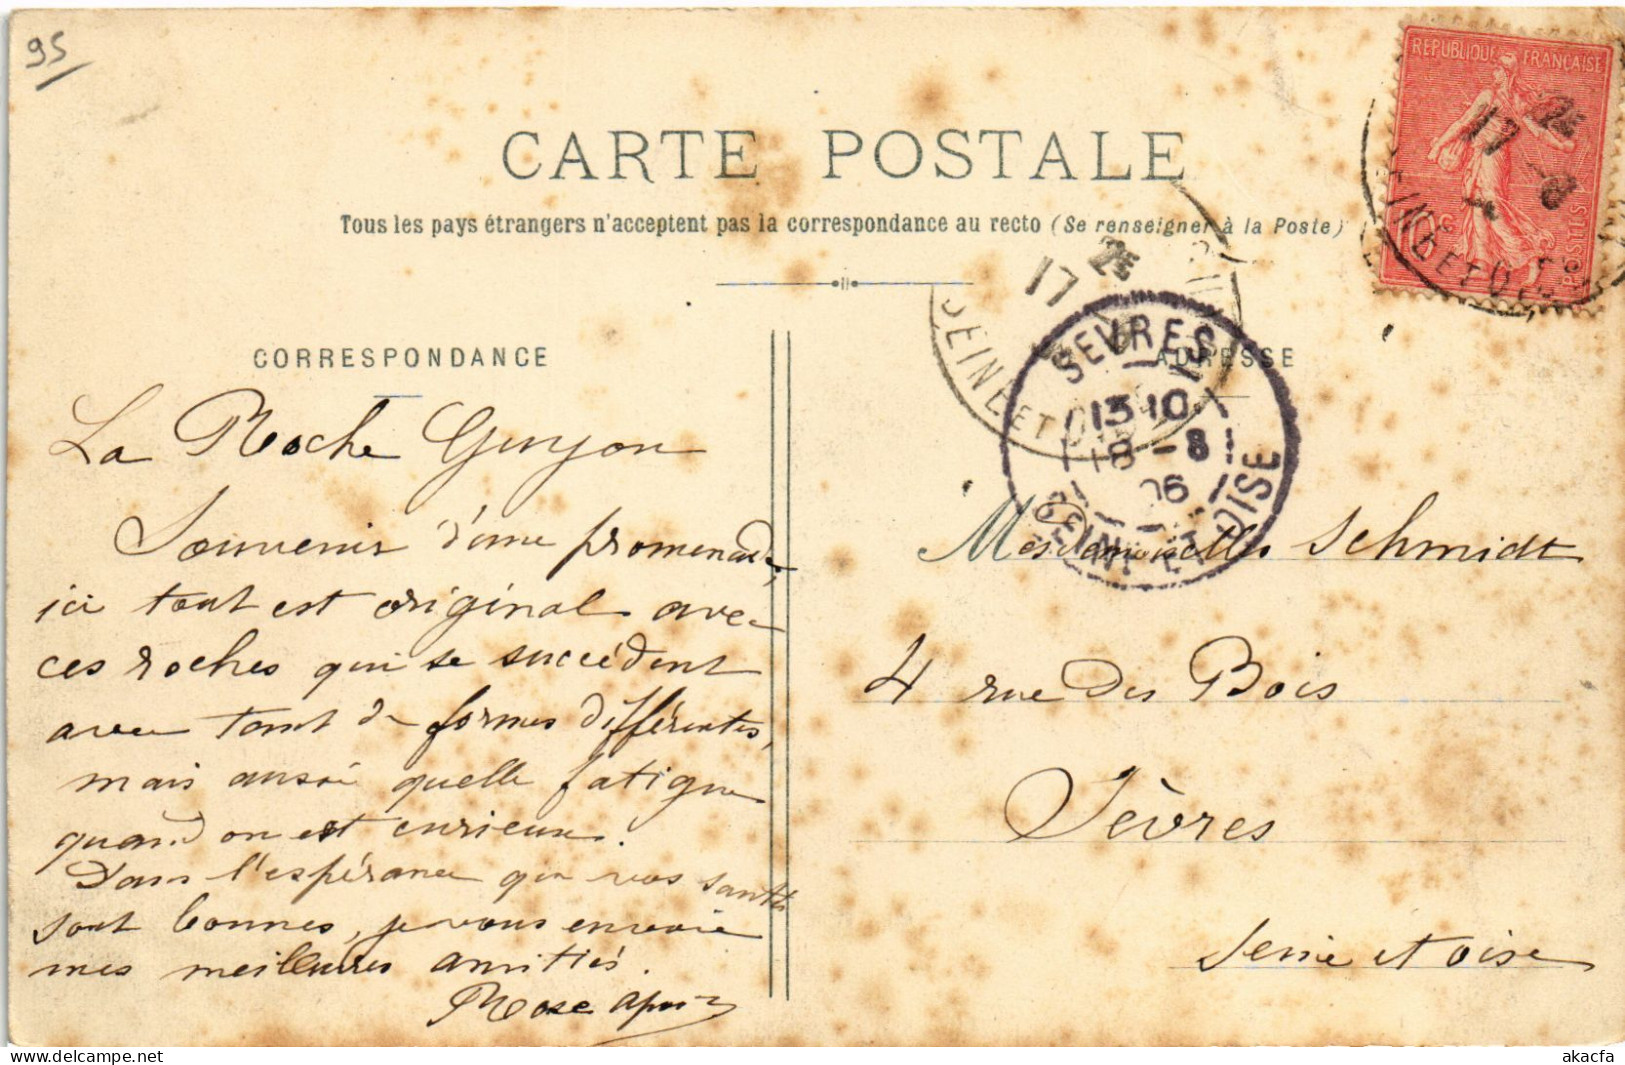 95
REPUBLIQUE FRANÇAISE
POSTES
17 -8
CARTE POSTALE
Tous les pays étrangers n'acceptent pas la correspondance au recto (Se renseigner à la Poste)
17
SEINE ET OISE
SEVRES
13 10
18 -8
06
SEINE ET OISE
CORRESPONDANCE
ADRESSE
La Roche Guyon
Souvenir d'une promenade,
ici tout est original avec
ces roches qui se succèdent
avec tant de formes différentes,
mais aussi quelle fatigue
quand on est curieux.
Dans l'espérance que vos santés
sont bonnes, je vous envoie
mes meilleures amitiés.
Rose
Mesdemoiselles Schmidt
4 rue des Bois
Sèvres
Seine et Oise
akacfa